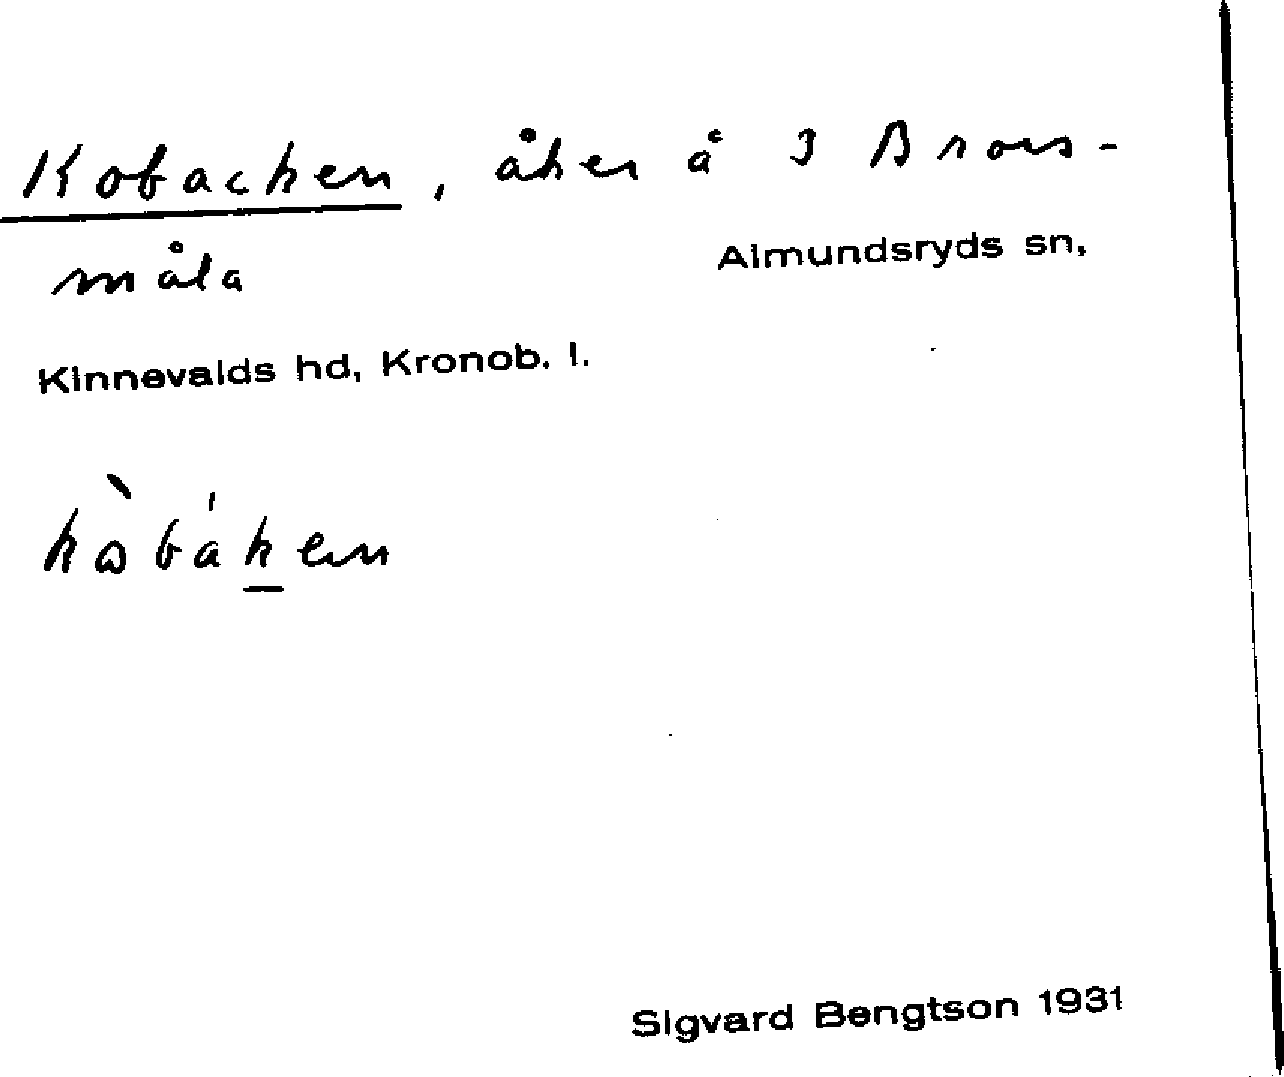 Kobacken, åker å 3 Brors-
måla
Almundsryds sn,
Kinnevalds hd, Kronob. l.
kòbáken
Sigvard Bengtson 1931